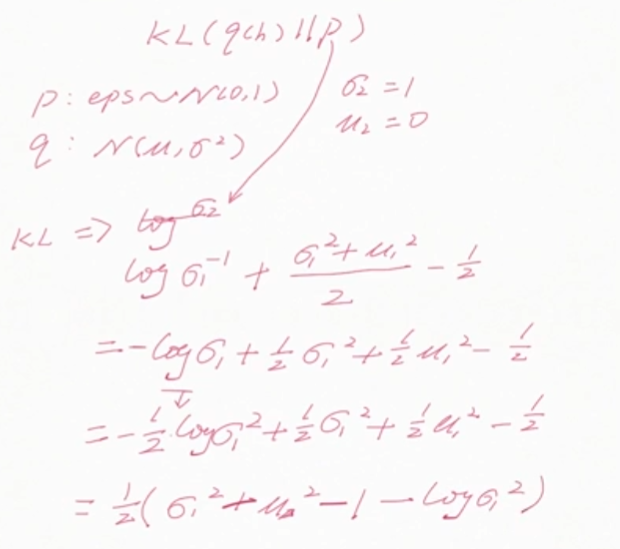 KL(q(h)||p)
p: eps~N(0,1)
σ₂ = 1
μ₂ = 0
q: N(μ,σ²)
KL => log σ₂
log σ₁⁻¹ + (σ₁² + μ₁²)/2 - 1/2
= -log σ₁ + 1/2 σ₁² + 1/2 μ₁² - 1/2
= -1/2 log σ₁² + 1/2 σ₁² + 1/2 μ₁² - 1/2
= 1/2(σ₁² + μ₁² - 1 - log σ₁²)